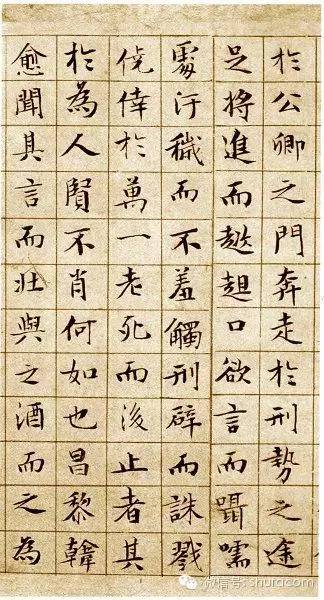 於公卿之門奔走於刑勢之途
足將進而趑趄口欲言而囁嚅
處汙穢而不羞觸刑辟而誅戮
僥倖於萬一老死而後止者其
於為人賢不肖何如也昌黎韓
愈聞其言而壯與之酒而之為
微信号: shufacom